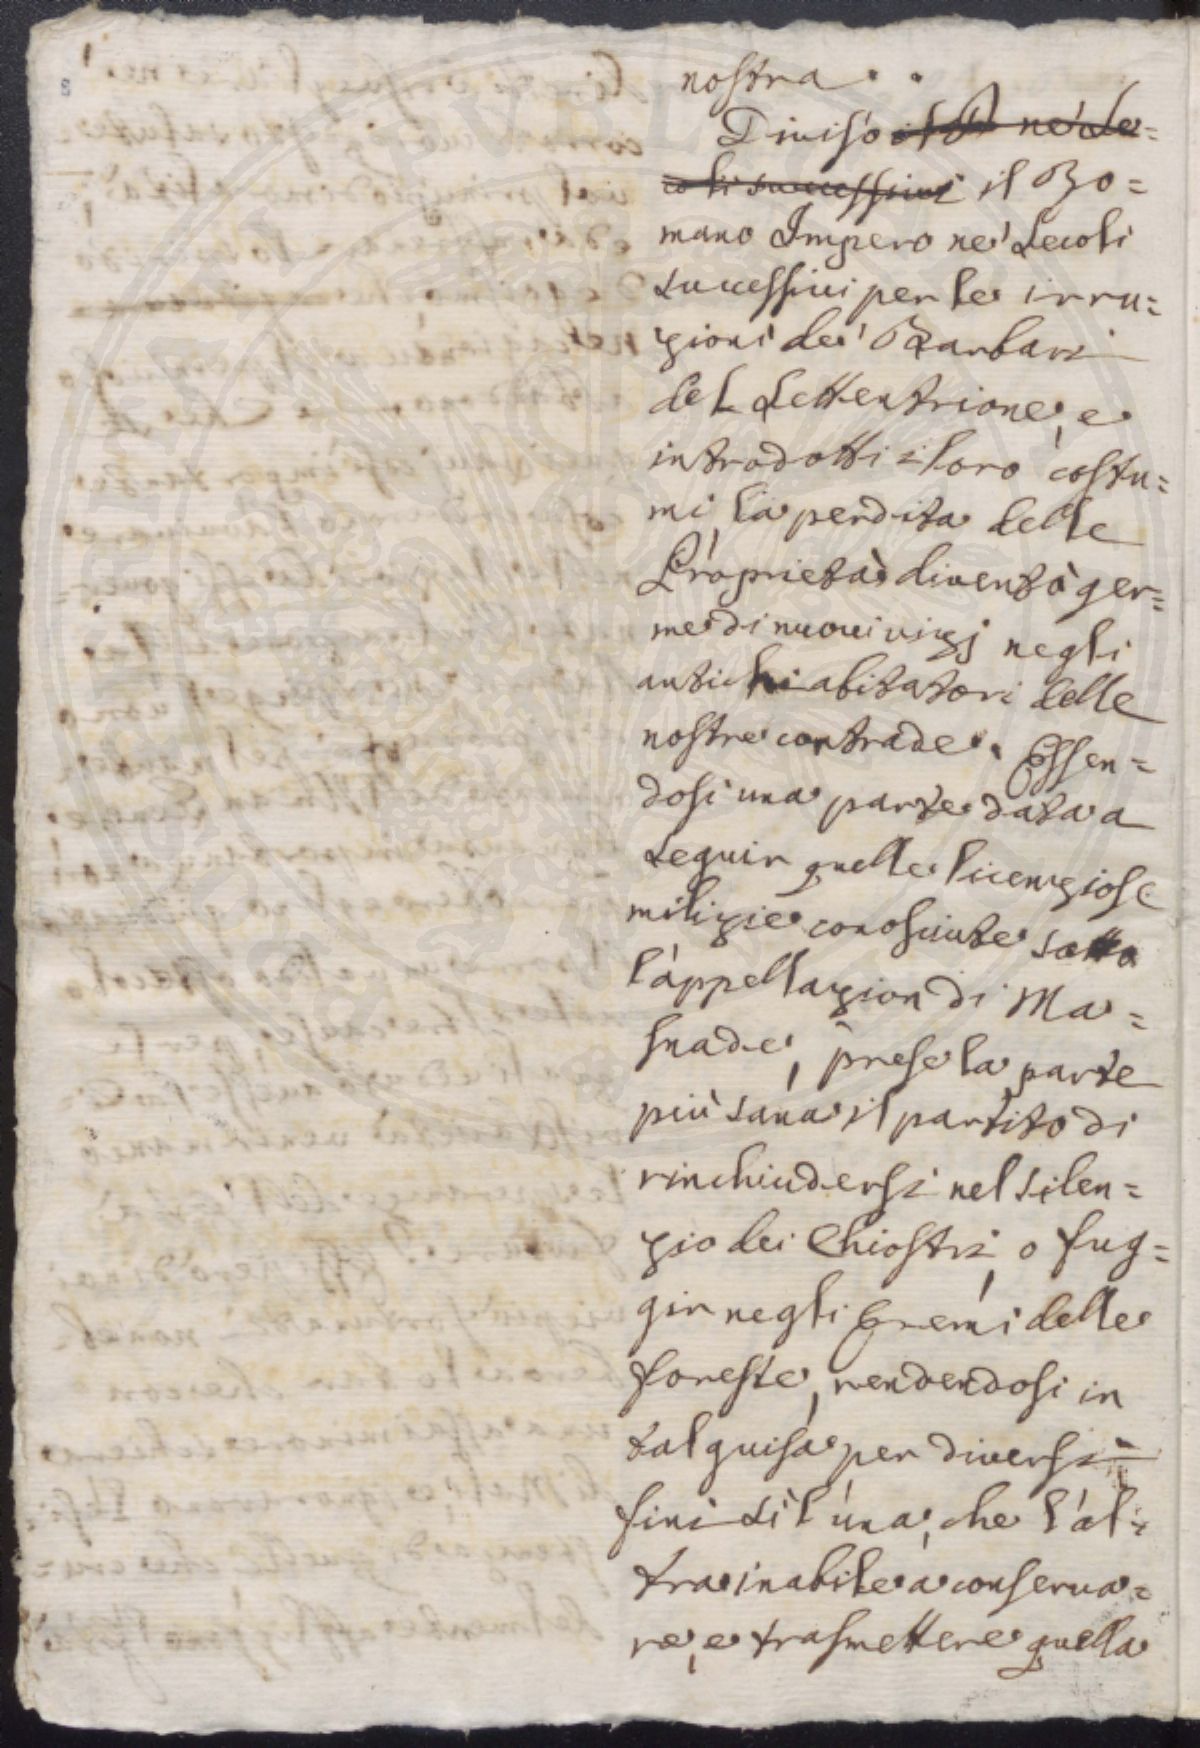 nostra. .
Diviso il R ne' Se=
coli successivi il Ro=
mano Impero ne' Secoli
successivi per le irru=
zioni de' Barbari
del Settentrione, e
introdotti i loro costu=
mi, la perdita delle
Proprietà diventò ger=
me di nuovi vizj negli
antichi abitatori delle
nostre contrade. Essen=
dosi una parte data a
seguir quelle licenziose
milizie conosciute sotto
l'appellazion di Ma=
snade, prese la parte
più sana il partito di
rinchiudersi nel silen=
zio dei Chiostri, o fug=
gir negli Eremi delle
foreste, rendendosi in
tal guisa per diversi
fini sì l'una, che l'al=
tra inabile a conserva=
re, e trasmettere quella